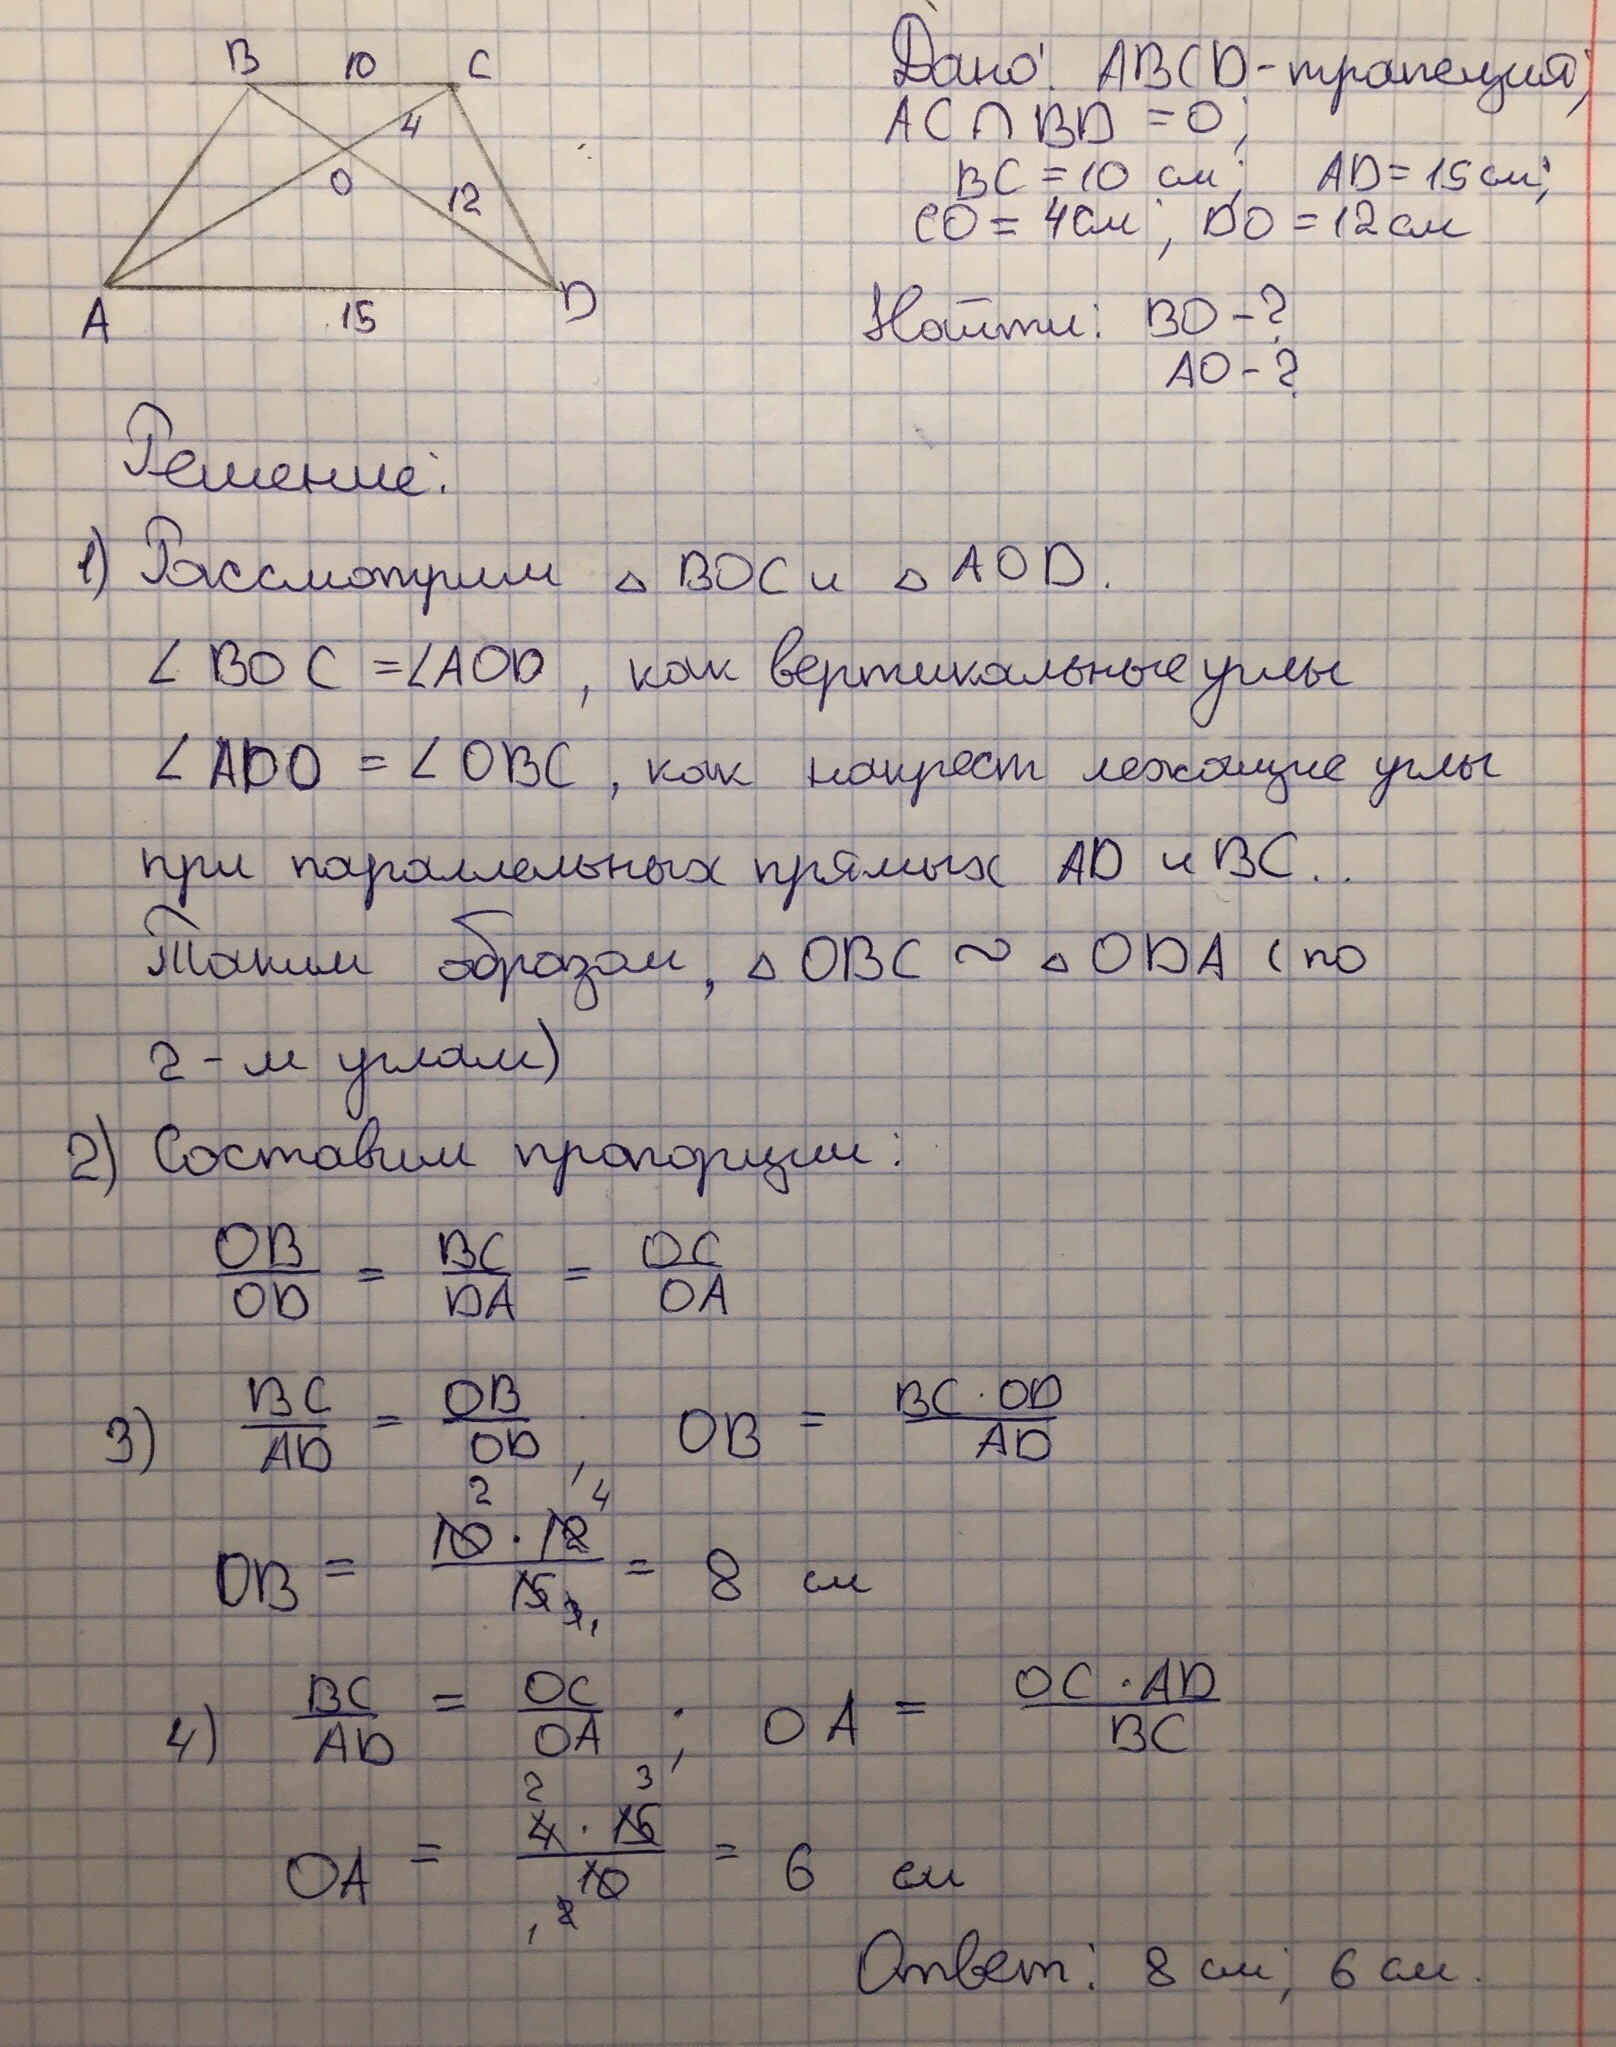 B 10 C
4
O
12
A 15 D
Дано: ABCD - трапеция;
AC ∩ BD = O;
BC = 10 см; AD = 15 см;
CO = 4 см; DO = 12 см
Найти: BO - ?
AO - ?
Решение:
1) Рассмотрим △ BOC и △ AOD.
∠ BOC = ∠AOD, как вертикальные углы
∠ ADO = ∠ OBC, как накрест лежащие углы
при параллельных прямых AD и BC..
Таким образом, △ OBC ~ △ ODA (по
2-м углам)
2) Составим пропорции:
OB/OD = BC/DA = OC/OA
3) BC/AD = OB/OD; OB = BC · OD/AD
2 4
OB = 10 · 12/15 = 8 см
3 1
4) BC/AD = OC/OA; OA = OC · AD/BC
2 3
OA = 4 · 15/10 = 6 см
1 2
Ответ: 8 см; 6 см.